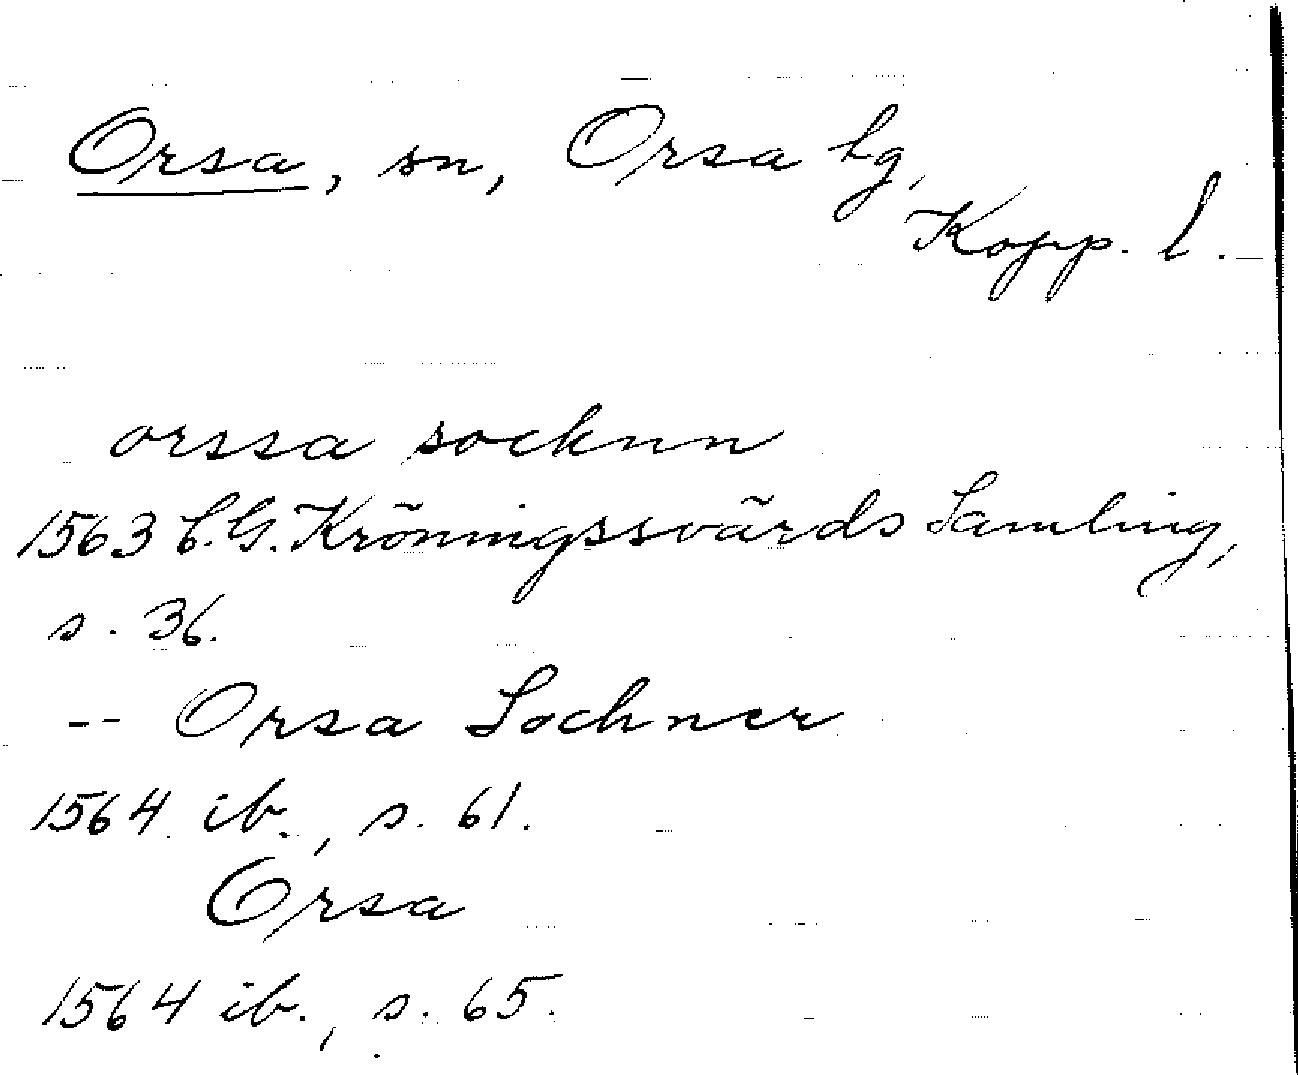 Orsa, sn, Orsa tg,
Kopp. l.
orssa socknn
1563 C.G. Kröningssvärds Samling,
s. 36.
-- Orsa Sochner
1564 ib., s. 61.
Orsa
1564 ib., s. 65.